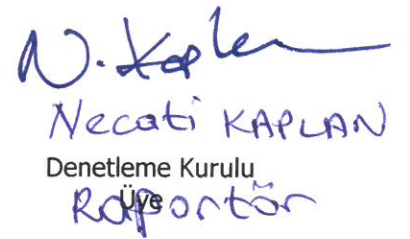 N. Kaplan
Necati KAPLAN
Denetleme Kurulu
Üye
Raportör